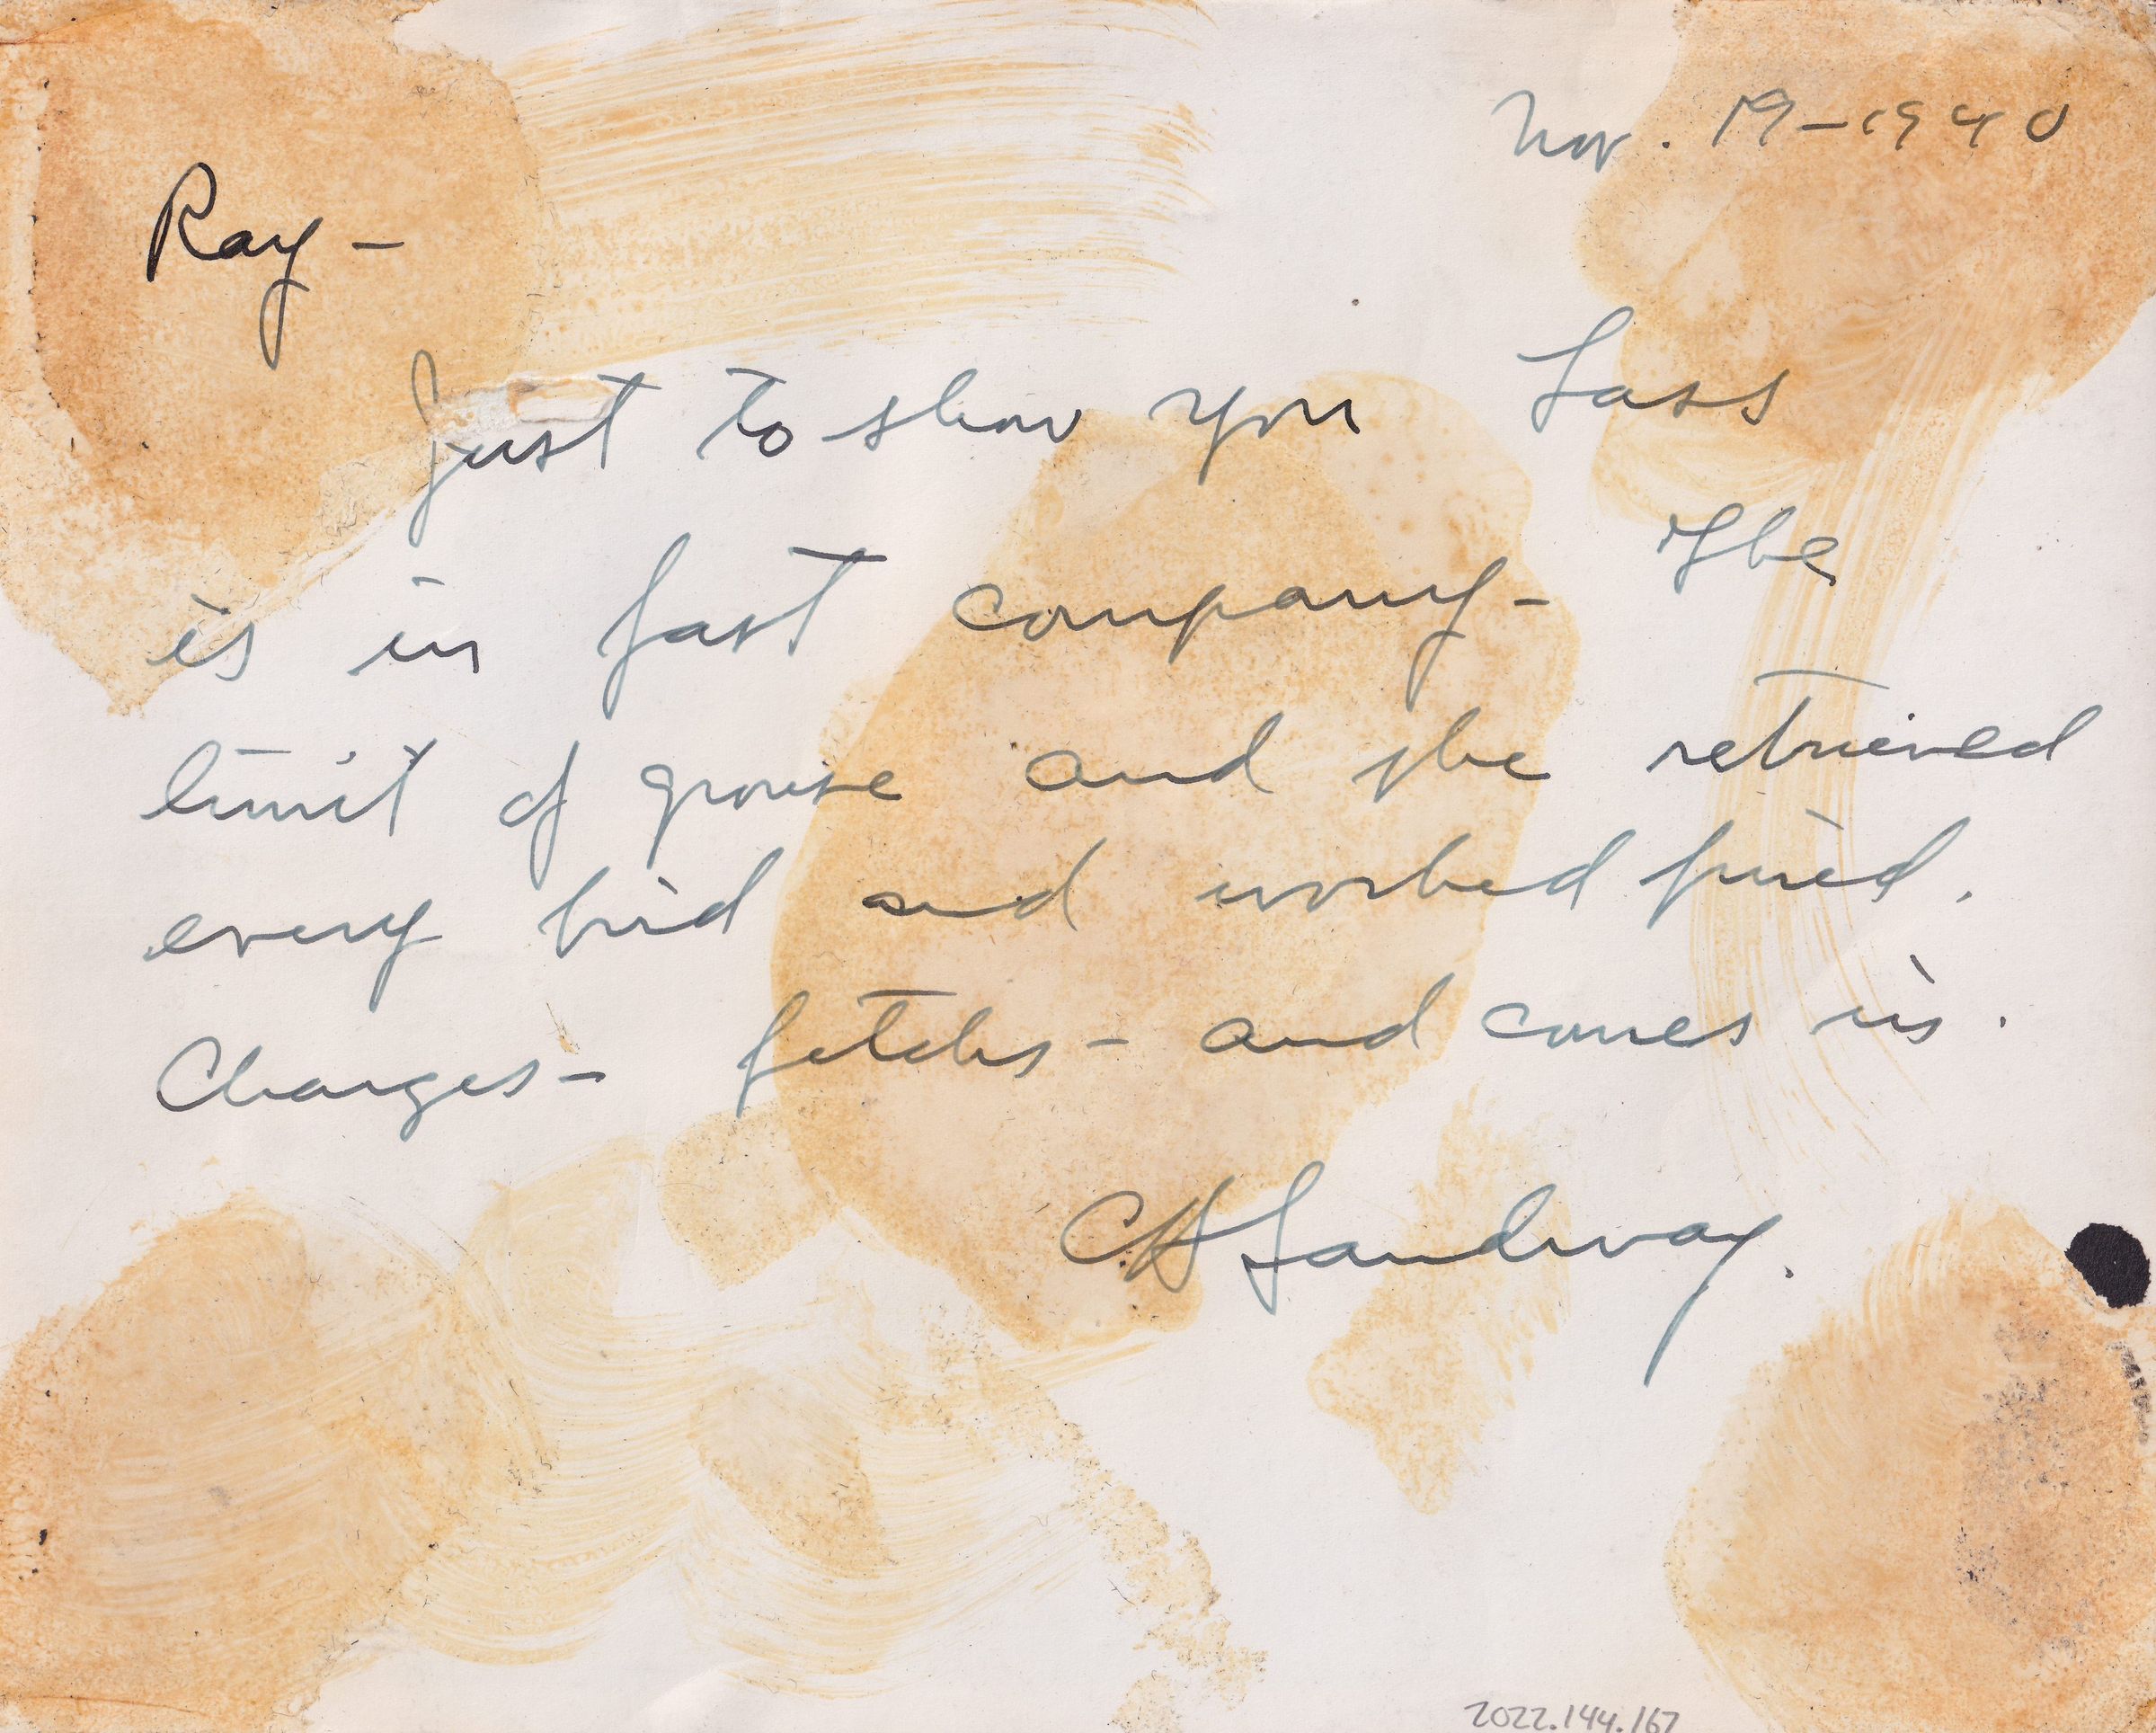 Nov. 19-1940
Ray -
Just to show you Lass
is in fast company - The
limit of grouse and she retrieved
every bird and worked fine.
Charges - fetches - and comes in.
CH Landway.
2022.144.167